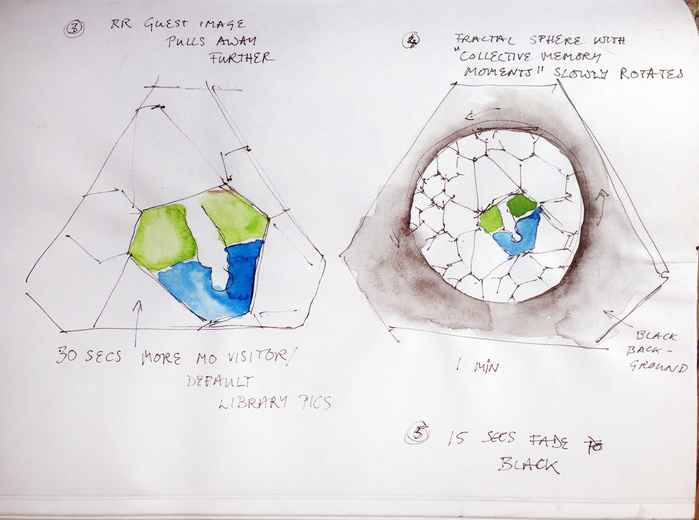 ③ RR GUEST IMAGE
PULLS AWAY
FURTHER
30 SECS MORE MO VISITOR/
DEFAULT
LIBRARY PICS
④ FRACTAL SPHERE WITH
"COLLECTIVE MEMORY
MOMENTS" SLOWLY ROTATES
BLACK
BACK-
GROUND
1 MIN
⑤ 15 SECS FADE TO
BLACK